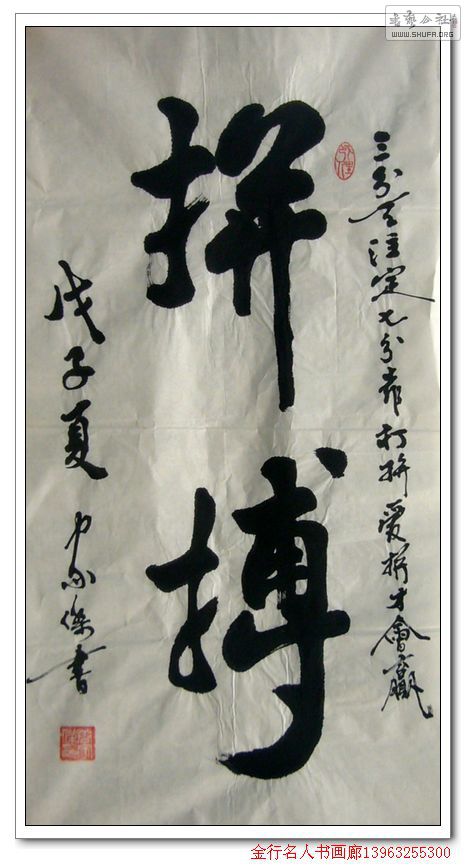 书艺公社
WWW.SHUFA.ORG
三分天注定七分靠打拼愛拼才會贏
拼搏
戊子夏
家傑書
金行名人书画廊13963255300